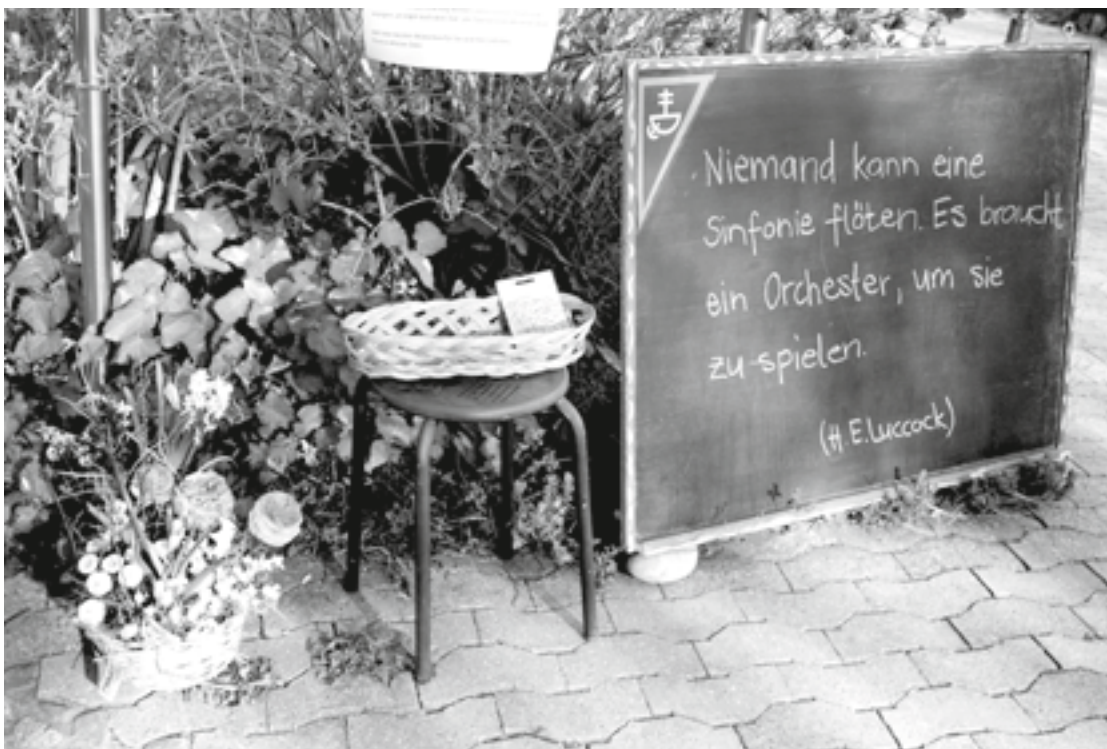 Niemand kann eine
Sinfonie flöten. Es braucht
ein Orchester, um sie
zu spielen.
(H. E. Luccock)